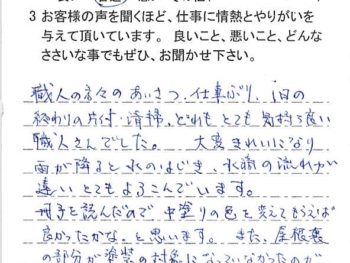 3 お客様の声を聞くほど、仕事に情熱とやりがいを
与えて頂いています。良いこと、悪いこと、どんな
ささいな事でもぜひ、お聞かせ下さい。
職人の方々のあいさつ、仕事ぶり、1日の
終わりの片付・清掃、どれもとても気持ち良い
職人さんでした。 大変きれいになり
雨が降ると水のはじき、水滴の流れが
違いとてもよろこんでいます。
冊子を読んだので、中塗りの色を変えてもらえば
良かったかな。と思います。また、屋根裏
の部分が塗装の対象になっていなかったのが